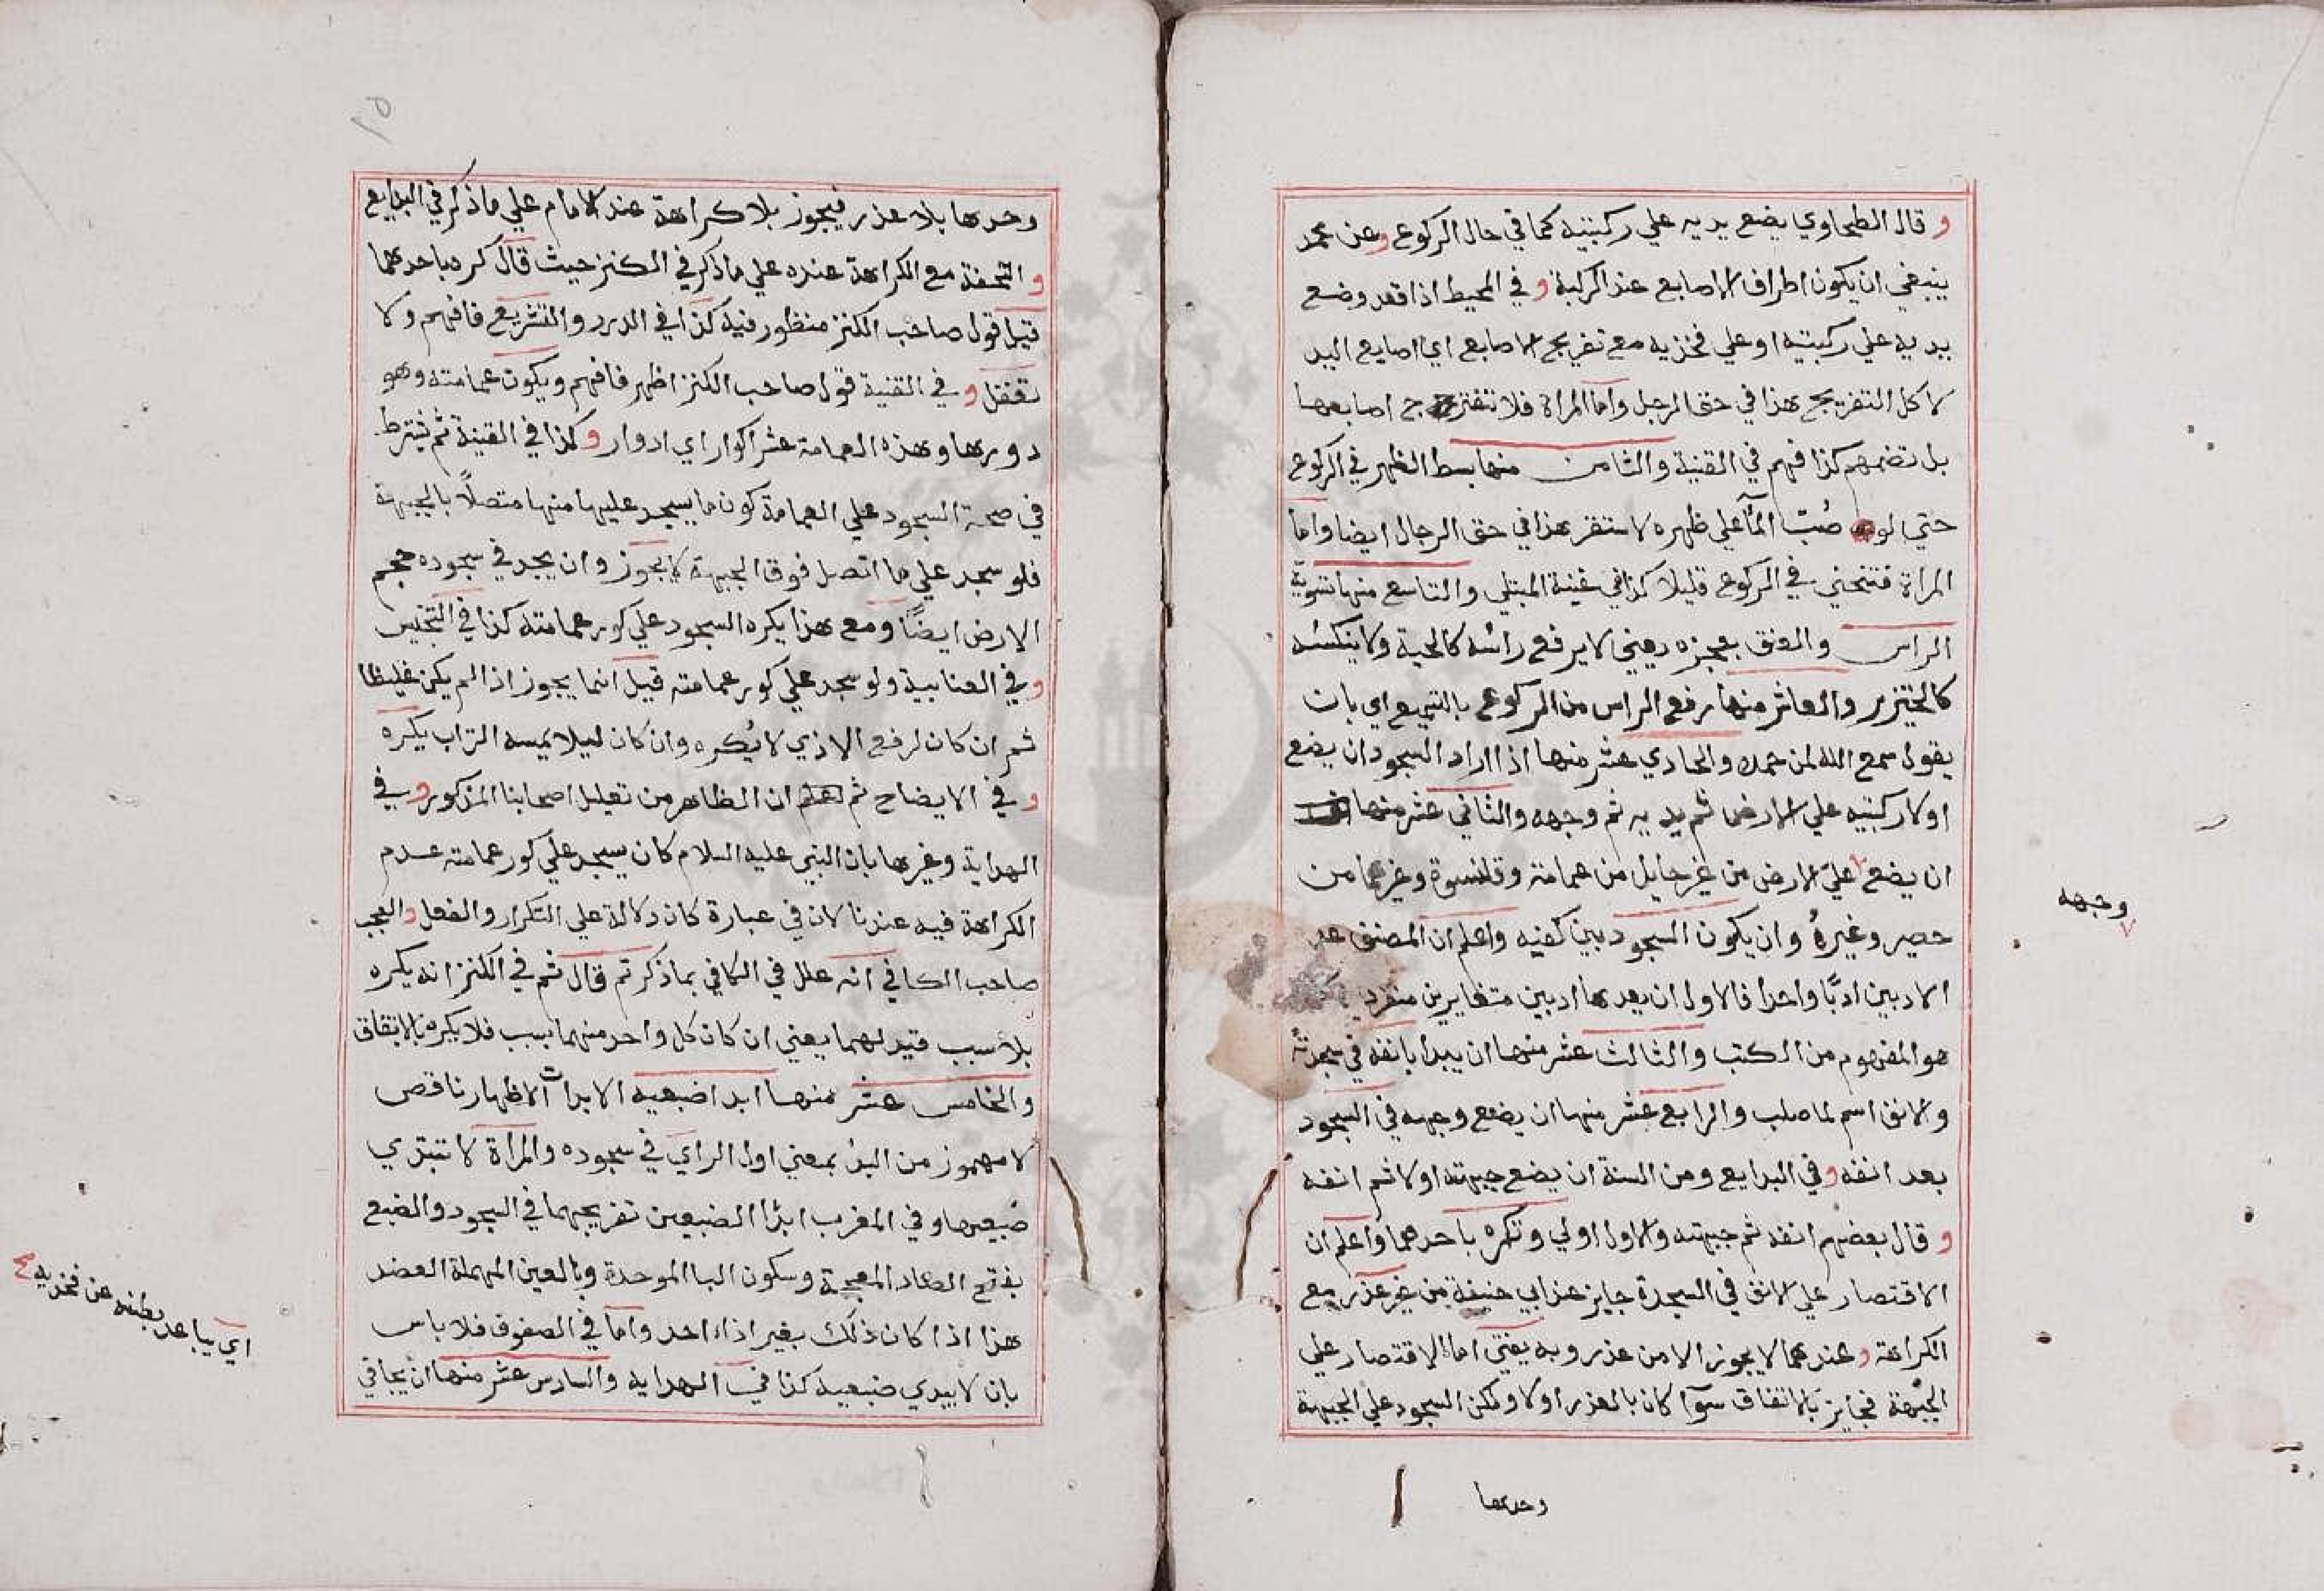 و قال الطحاوي يضع يديه علي ركبتيه كما في حال الركوع وعن محمد
ينبغي ان يكون اطراف الاصابع عند الركبة و في المحيط اذا قعد وضع
يديه علي ركبتيه او علي فخذيه مع تفريج الاصابع اي اصابع اليد
لا كل التفريج هذا في حق الرجل واما المراة فلا تفترج اصابعها
بل تضمهم كذا فهم في القنية والثامن منها بسط الظهر في الركوع
حتي لو صُبّ المآ علي ظهره لاستقر هذا في حق الرجال ايضا واما
المراة فتنحني في الركوع قليلا كذا في غنية المبتلي والتاسع منها تسوية
الراس والعنق بعجزه يعني لا يرفع راسه كالحية ولا ينكسه
كالخنزير والعاشر منها رفع الراس من الركوع بالتسميع اي بان
يقول سمع الله لمن حمده والحادي عشر منها اذا اراد السجود ان يضع
اولا ركبتيه علي الارض ثم يديه ثم وجهه والثاني عشر منها
ان يضع علي الارض من غير حايل من عمامة وقلنسوة وغيرهما من
وجهه
حصير وغيره وان يكون السجود بين كفيه واعلم ان المصنف عد
الادبين ادبًا واحدا فالاولي ان يعدها ادبين متغايرين
هو المفهوم من الكتب والثالث عشر منها ان يبدا بانفه في سجدته
والانف اسم لما صلب والرابع عشر منها ان يضع وجهه في السجود
بعد انفه و في البدايع ومن السنة ان يضع جبهته اولا ثم انفه
و قال بعضهم انفه ثم جبهته والاول اولي وتكره باحدهما واعلم ان
الاقتصار علي الانف في السجدة جايز عند ابي حنيفة من غير عذر مع
الكراهة و عندهما لا يجوز الا من عذر وبه يفتي اما الاقتصار علي
الجبهة فجايز بالاتفاق سوآ كان بالعذر او لا ولكن السجود علي الجبهة
وحدها
وحدها بلا عذر فيجوز بلا كراهة عند الامام علي ما ذكر في البدايع
و التحفة مع الكراهة عنده علي ما ذكر في الكنز حيث قال كره باحدهما
قيل قول صاحب الكنز منظور فيه كذا في الدرر والتشريع فافهم ولا
تغفل و في القنية قول صاحب الكنز اظهر فافهم ويكون عمامته وهو
دورها وهذه العمامة عشر اكوار اي ادوار و كذا في القنية ثم يشترط
في صحة السجود علي العمامة كون ما يسجد عليها منها متصلًا بالجبهة
فلو سجد علي ما اتصل فوق الجبهة لا يجوز وان يجد في سجوده حجم
الارض ايضًا ومع هذا يكره السجود علي كور عمامته كذا في التجنيس
و في العتابية ولو سجد علي كور عمامته قيل انما يجوز اذا لم يكن غليظا
ثم ان كان لرفع الاذي لا يُكره وان كان ليلا يمسه التراب يكره
و في الايضاح ثم اعلم ان الظاهر من تعليل اصحابنا المذكور و في
الهداية وغيرها بان النبي عليه السلام كان يسجد علي كور عمامته عدم
الكراهة فيه عندنا لان في عبارة كان دلالة علي التكرار والفعل والعجب
صاحب الكافي انه علل في الكافي بما ذكر ثم قال ثم في الكنز انه يكره
بلا سبب قيد لهما يعني ان كان كل واحد منهما بسبب فلا يكره بالاتفاق
والخامس عشر منها ابدا ضبعيه الابدآ الاظهار ناقص
لا مهموز من البدأ بمعني اول الراي في سجوده والمراة لا تبتدي
ضبعيها و في المغرب ابدًا الضبعين تفريجهما في السجود والضبع
بفتح الضاد المعجمة وسكون البا الموحدة وبالعين المهملة العضد
هذا اذا كان ذلك بغير اذاء احد واما في الصفوف فلا باس
بان لا يبدي ضبعيه كذا في الهداية والسادس عشر منها ان يجافي
اي يباعد بطنه عن فخذيه